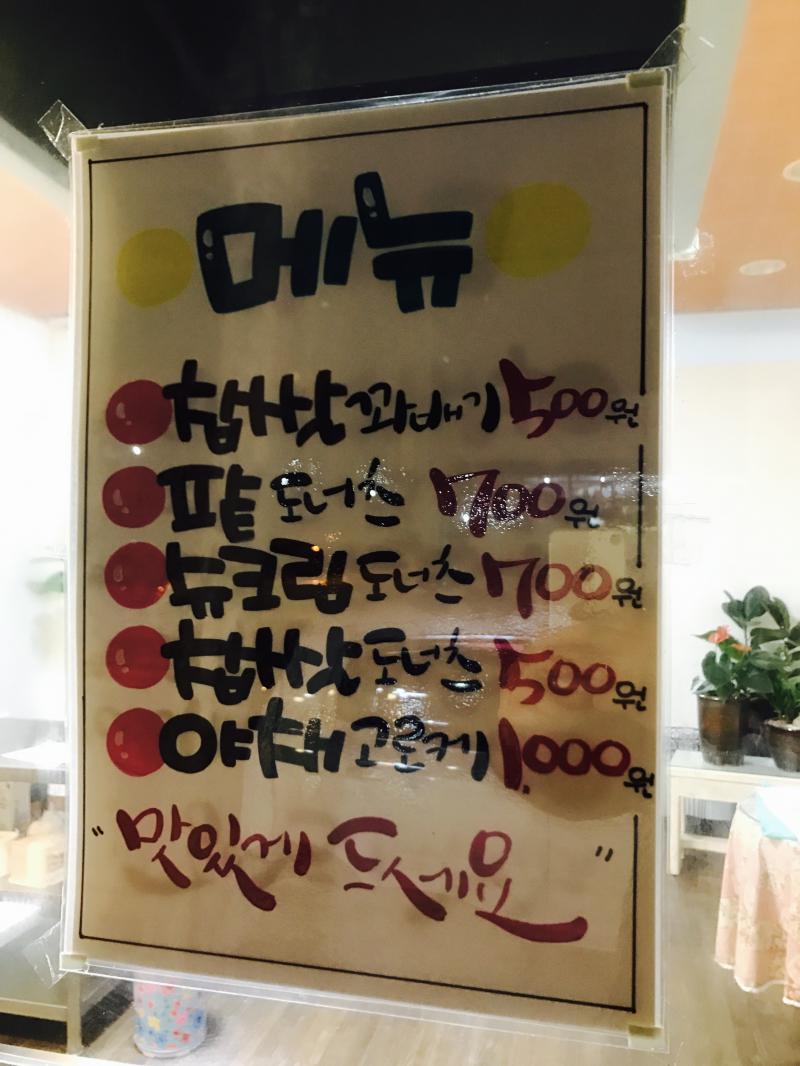 메뉴
찹쌀 꽈배기 500원
팥 도너츠 700원
슈크림 도너츠 700원
찹쌀 도너츠 500원
야채 고로케 1,000원
"맛있게 드세요"